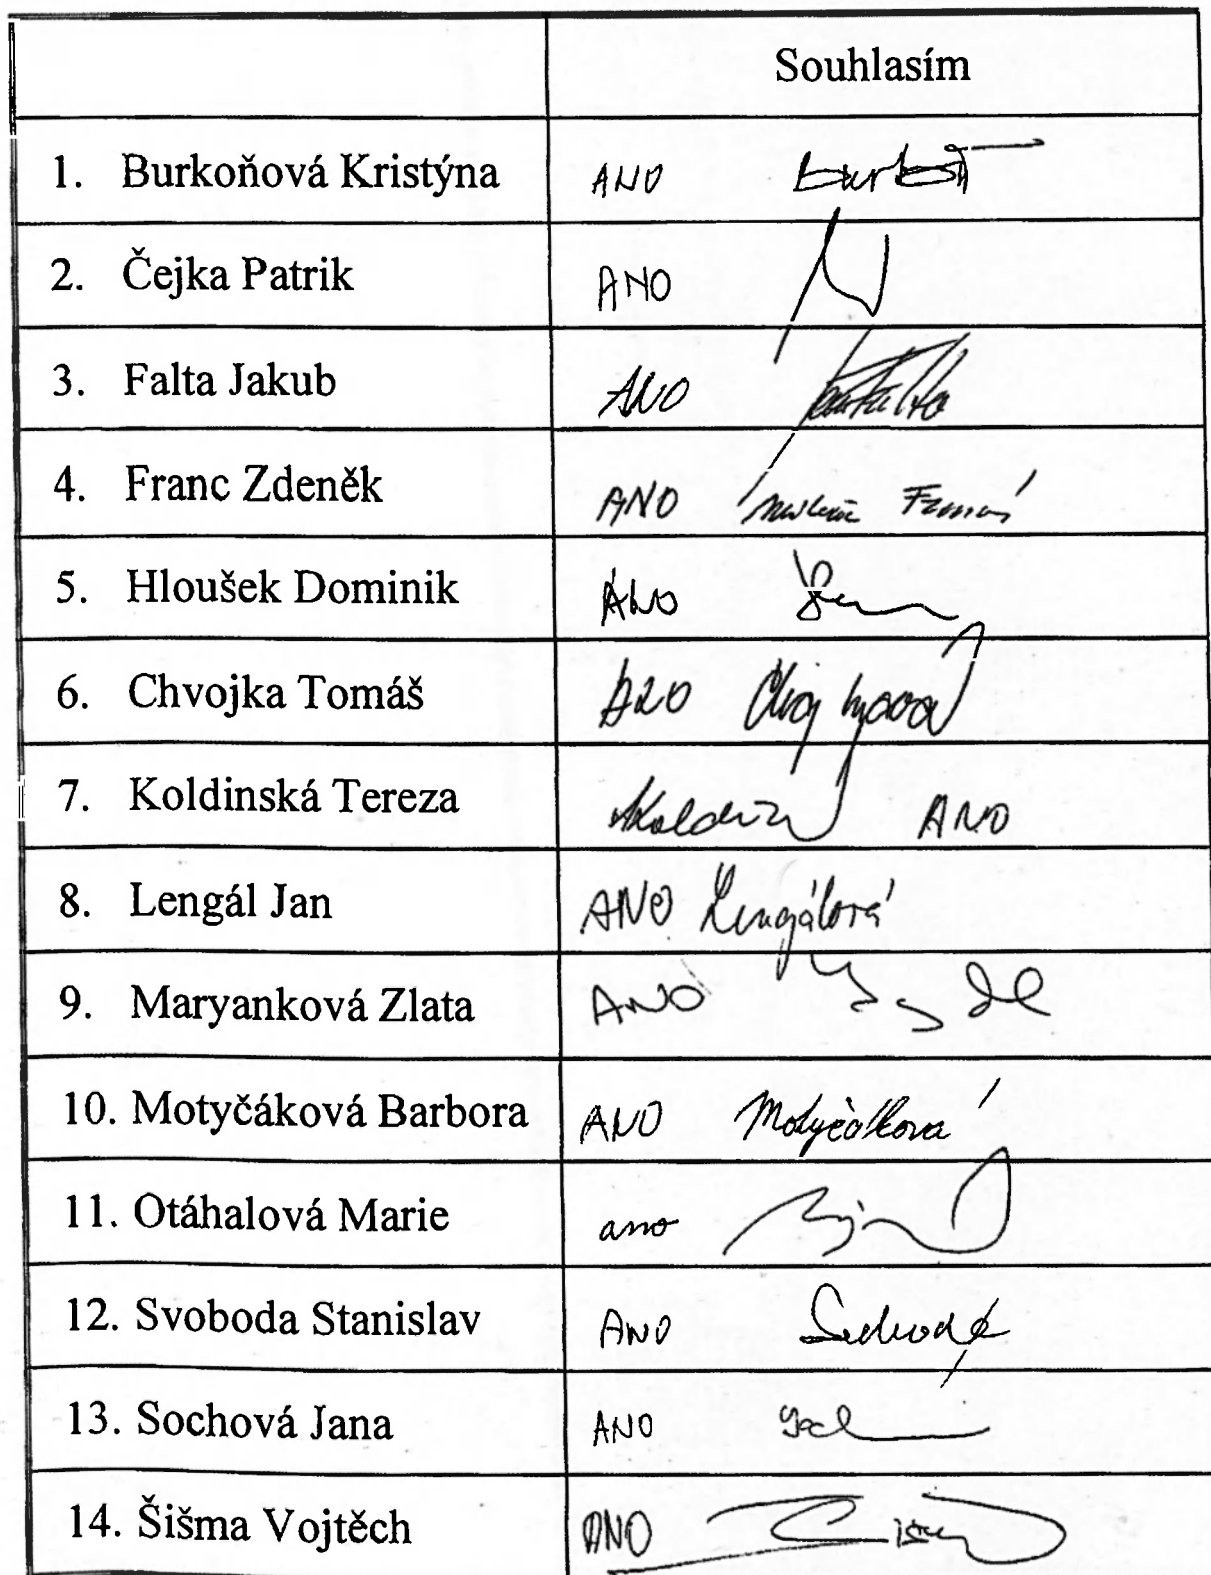 Souhlasím
1. Burkoňová Kristýna ANO
2. Čejka Patrik ANO
3. Falta Jakub ANO
4. Franc Zdeněk ANO
5. Hloušek Dominik ANO
6. Chvojka Tomáš ANO
7. Koldinská Tereza ANO
8. Lengál Jan ANO Lengálová
9. Maryanková Zlata ANO
10. Motyčáková Barbora ANO Motyčáková
11. Otáhalová Marie ano
12. Svoboda Stanislav ANO
13. Sochová Jana ANO
14. Šišma Vojtěch ANO